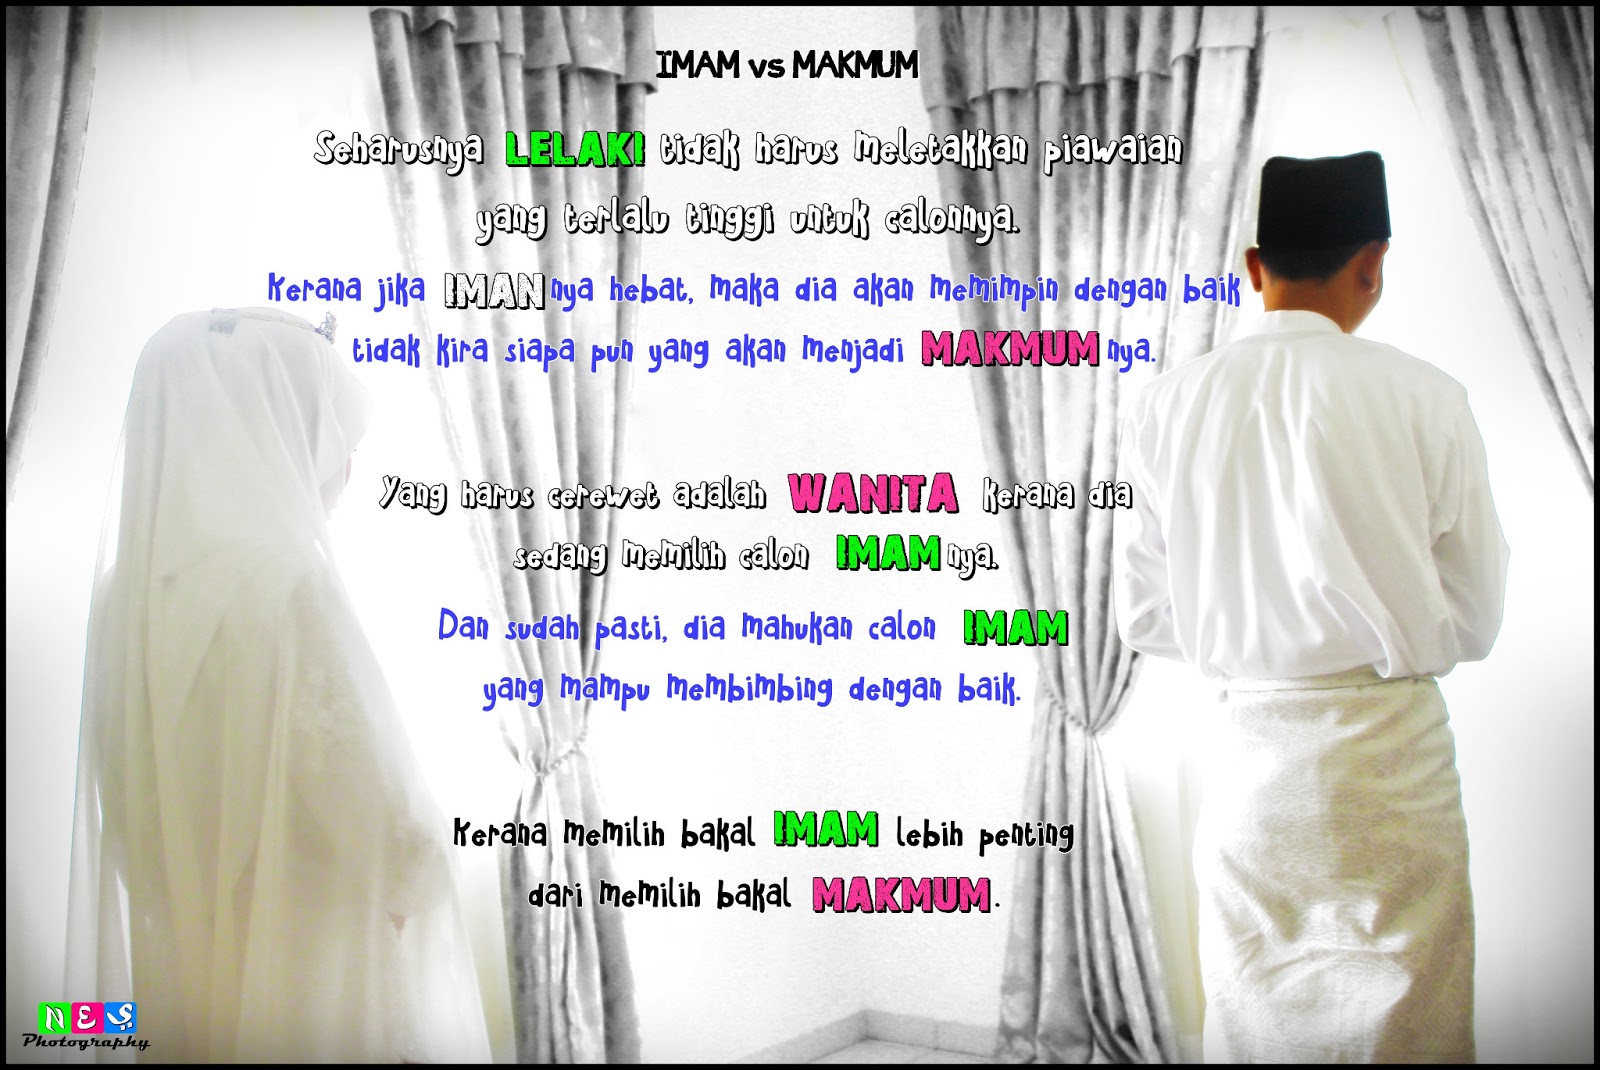 IMAM vs MAKMUM
Seharusnya LELAKI tidak harus meletakkan piawaian
yang terlalu tinggi untuk calonnya.
Kerana jika IMANnya hebat, maka dia akan memimpin dengan baik
tidak kira siapa pun yang akan menjadi MAKMUMnya.
Yang harus cerewet adalah WANITA kerana dia
sedang memilih calon IMAMnya.
Dan sudah pasti, dia mahukan calon IMAM
yang mampu membimbing dengan baik.
Kerana memilih bakal IMAM lebih penting
dari memilih bakal MAKMUM.
NES
Photography